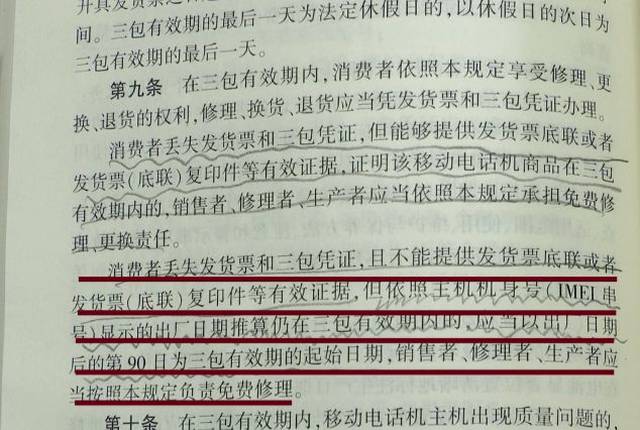 开具发货票之日
间。三包有效期的最后一天为法定休假日的,以休假日的次日为
三包有效期的最后一天。
第九条 在三包有效期内,消费者依照本规定享受修理、更
换、退货的权利,修理、换货、退货应当凭发货票和三包凭证办理。
消费者丢失发货票和三包凭证,但能够提供发货票底联或者
发货票(底联)复印件等有效证据,证明该移动电话机商品在三包
有效期内的,销售者、修理者、生产者应当依照本规定承担免费修
理、更换责任。
消费者丢失发货票和三包凭证,且不能提供发货票底联或者
发货票(底联)复印件等有效证据,但依照主机机身号(IMEI串
号)显示的出厂日期推算仍在三包有效期内的,应当以出厂日期
后的第90日为三包有效期的起始日期,销售者、修理者、生产者应
当按照本规定负责免费修理。
第十条 在三包有效期内,移动电话机主机出现质量问题的,